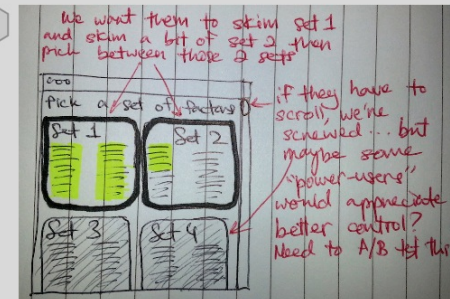 We want them to skim set 1
and skim a bit of set 2 then
pick between these 2 sets
Pick a set of factors
Set 1
Set 2
Set 3
Set 4
if they have to
scroll, we're
screwed... but
maybe some
"power-users"
would appreciate
better control?
Need to A/B tst this